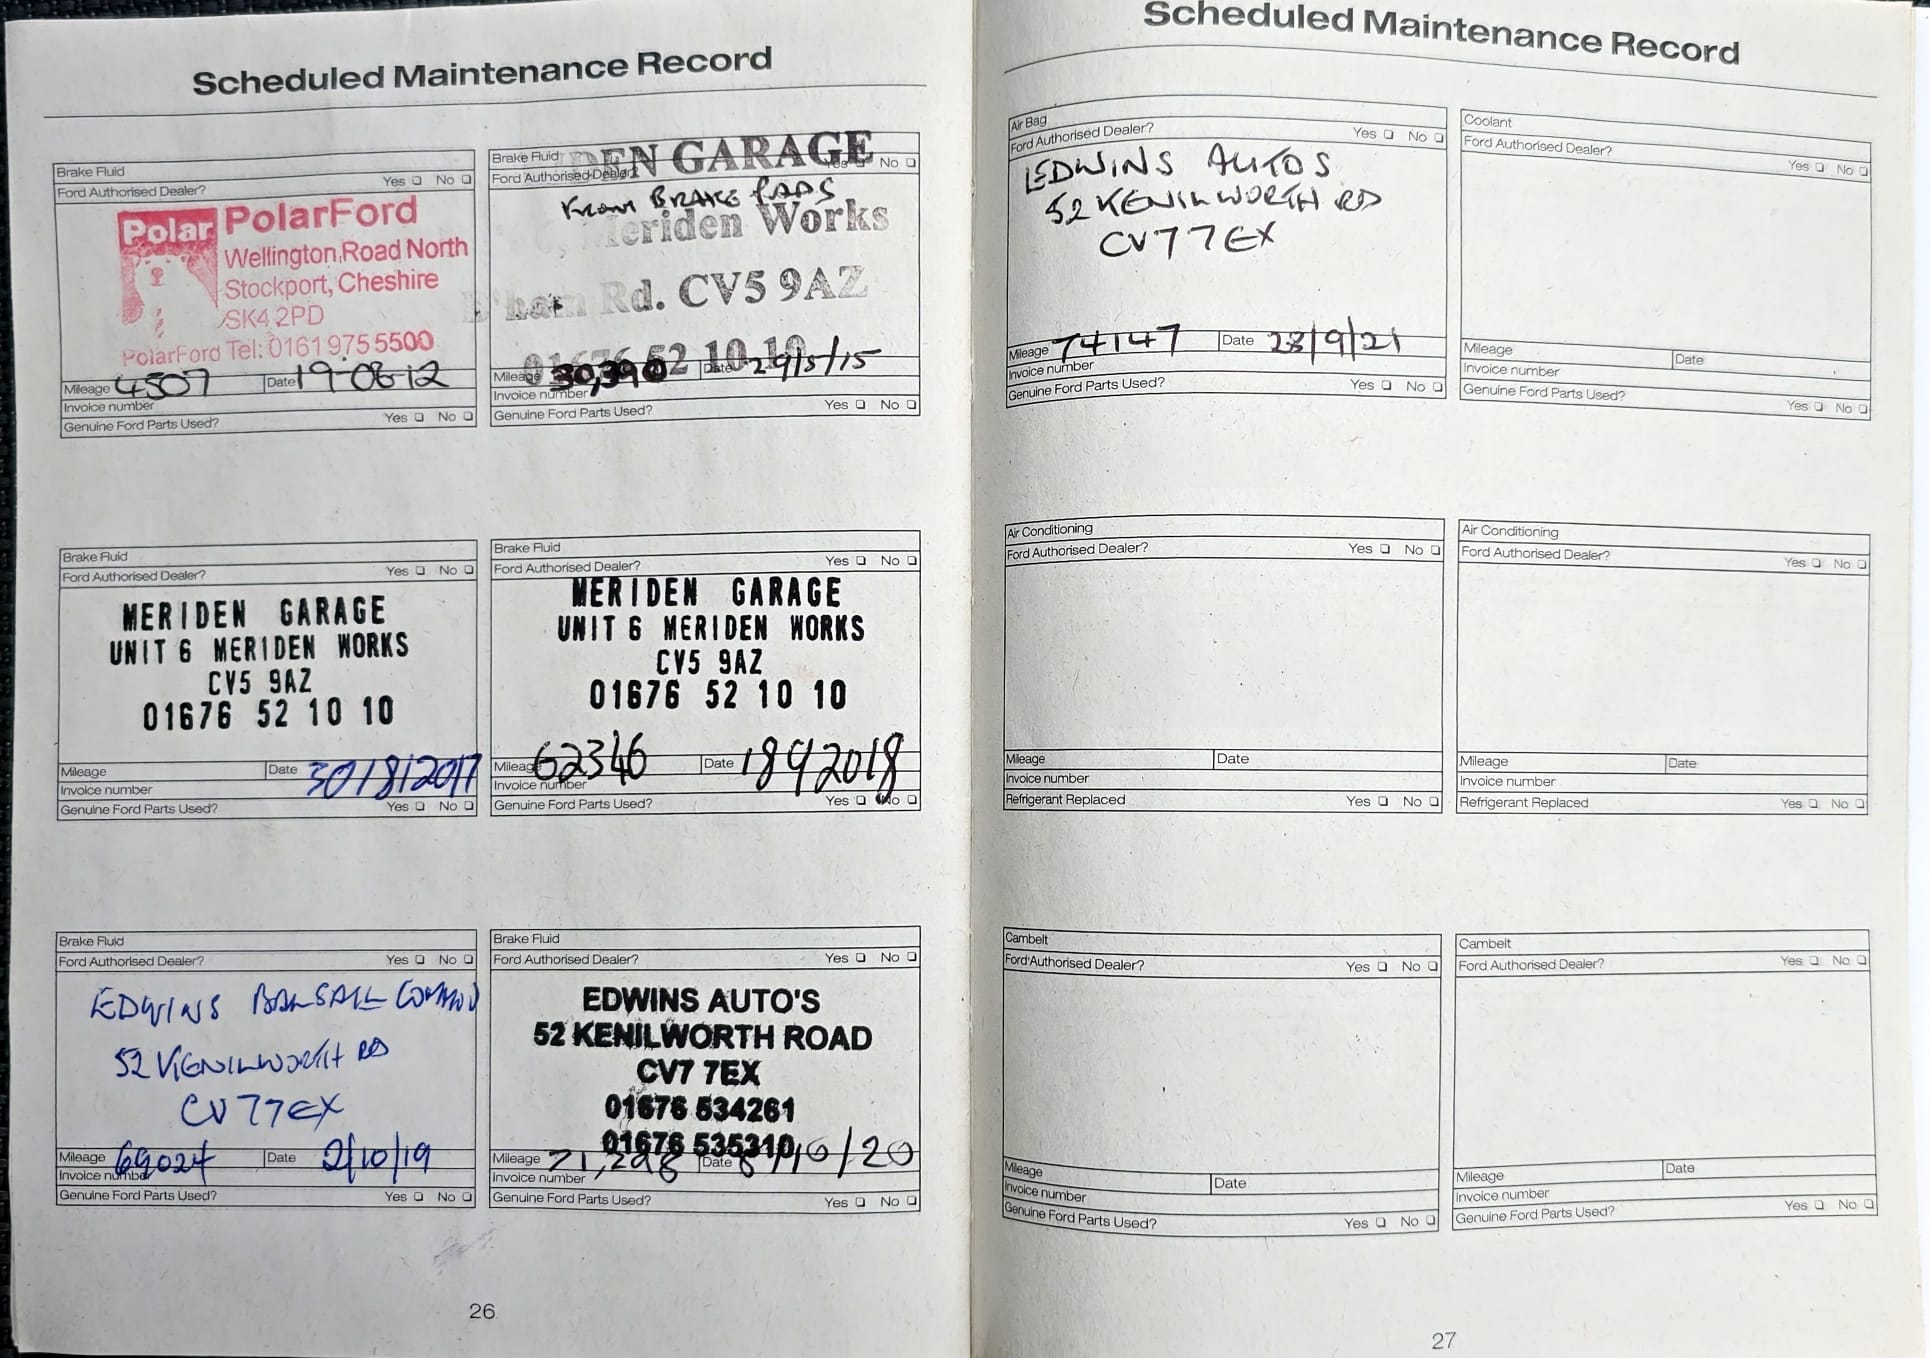 Scheduled Maintenance Record
Brake Fluid
Ford Authorised Dealer? Yes No
Polar PolarFord
Wellington Road North
Stockport, Cheshire
SK4 2PD
PolarFord Tel: 0161 975 5500
Mileage 4507 Date 19-08-12
Invoice number
Genuine Ford Parts Used? Yes No
Brake Fluid DEN GARAGE
Ford Authorised Dealer? Yes No
BRAKE PADS
Meriden Works
Rd. CV5 9AZ
01676 52 10 10
Mileage 30,390 Date 29/5/15
Invoice number
Genuine Ford Parts Used? Yes No
Brake Fluid
Ford Authorised Dealer? Yes No
MERIDEN GARAGE
UNIT 6 MERIDEN WORKS
CV5 9AZ
01676 52 10 10
Mileage Date 30/8/2017
Invoice number
Genuine Ford Parts Used? Yes No
Brake Fluid
Ford Authorised Dealer? Yes No
MERIDEN GARAGE
UNIT 6 MERIDEN WORKS
CV5 9AZ
01676 52 10 10
Mileage 62346 Date 18 9 2018
Invoice number
Genuine Ford Parts Used? Yes No
Brake Fluid
Ford Authorised Dealer? Yes No
EDWINS BALSALL COMMON
52 KENILWORTH RD
CV7 7EX
Mileage 69024 Date 2/10/19
Invoice number
Genuine Ford Parts Used? Yes No
Brake Fluid
Ford Authorised Dealer? Yes No
EDWINS AUTO'S
52 KENILWORTH ROAD
CV7 7EX
01676 534261
01676 535310
Mileage 71,298 Date /10/20
Invoice number
Genuine Ford Parts Used? Yes No
26
Scheduled Maintenance Record
Air Bag
Ford Authorised Dealer? Yes No
EDWINS AUTOS
52 KENILWORTH RD
CV7 7EX
Mileage 74147 Date 28/9/21
Invoice number
Genuine Ford Parts Used? Yes No
Coolant
Ford Authorised Dealer?
Yes No
Mileage Date
Invoice number
Genuine Ford Parts Used?
Yes No
Air Conditioning
Ford Authorised Dealer? Yes No
Mileage Date
Invoice number
Refrigerant Replaced Yes No
Air Conditioning
Ford Authorised Dealer? Yes No
Mileage Date
Invoice number
Refrigerant Replaced Yes No
Cambelt
Ford Authorised Dealer? Yes No
Mileage Date
Invoice number
Genuine Ford Parts Used? Yes No
Cambelt
Ford Authorised Dealer? Yes No
Mileage Date
Invoice number
Genuine Ford Parts Used? Yes No
27